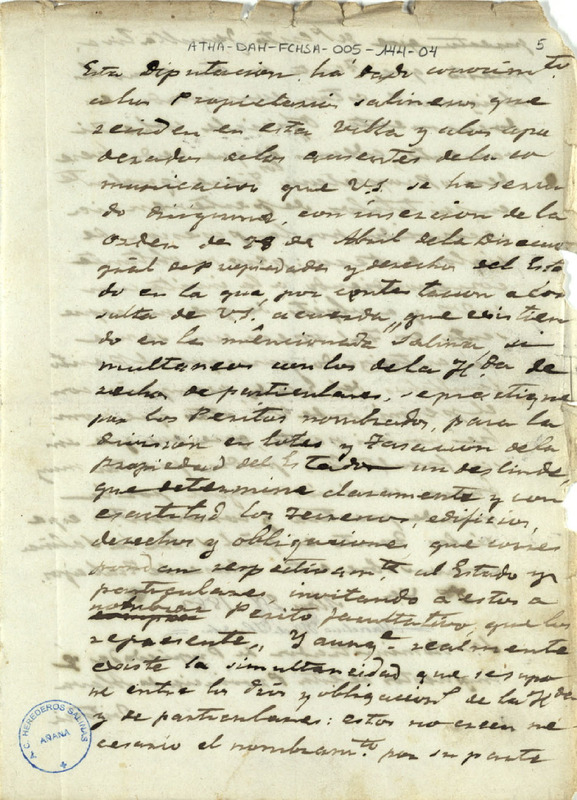 ATHA-DAH-FCHSA-005-144-04
5
Esta Diputacion ha dado conocimto.
a los Propietarios salineros que
reciden en esta Villa y a los apo
derados de los ausentes de la co
municacion que V.S. se ha servi
do dirigirme, con insercion de la
Orden de 28 de Abril de la Direccion
gral de propiedades y derechos del Esta
do en la que, por contestacion a con
sulta de V.S. acuerda "que existien
do en la mencionada Salina si
multaneos con los de la Hda de
rechos de particulares, se practique
por los Peritos nombrados, para la
division en lotes y tasacion de la
propiedad del Estado un deslinde,
que determine claramente y con
esactitud los terrenos, edificios,
derechos y obligaciones, que corres
pondan respectivamte. al Estado y a
particulares invitando a estos a
nombrar Perito facultativo, que los
represente," Y aunqe. realmente
existe la simultaneidad que se supo
ne entre los dros y obligacions de la Hda
y de particulares: estos no creen ne
cesario el nombramto. por su parte
A.C. HEREDEROS SALINAS
ARANA